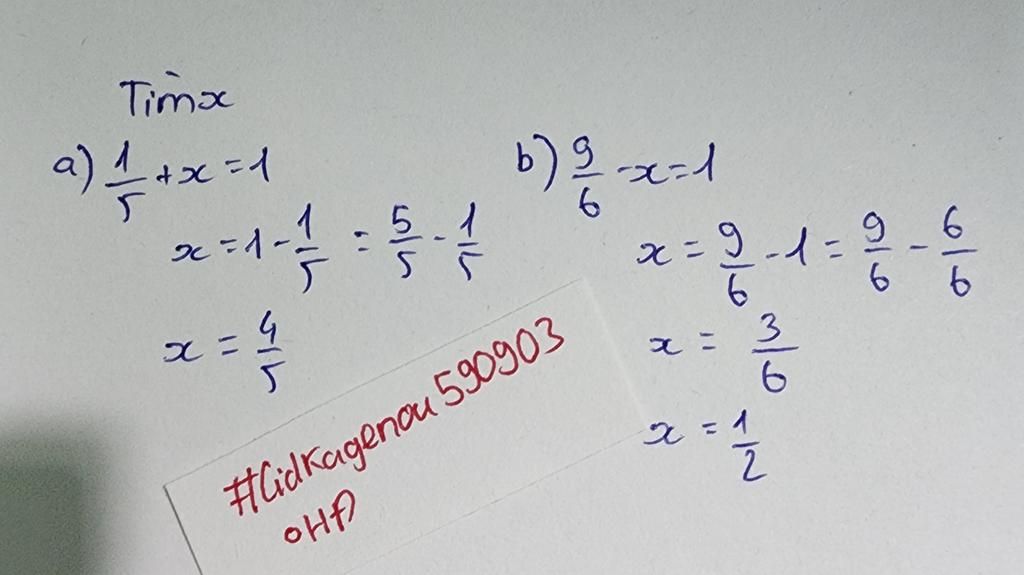 Tìm x
a) 1/5 + x = 1
x = 1 - 1/5 = 5/5 - 1/5
x = 4/5
b) 9/6 - x = 1
x = 9/6 - 1 = 9/6 - 6/6
x = 3/6
x = 1/2
#CidKagenou590903